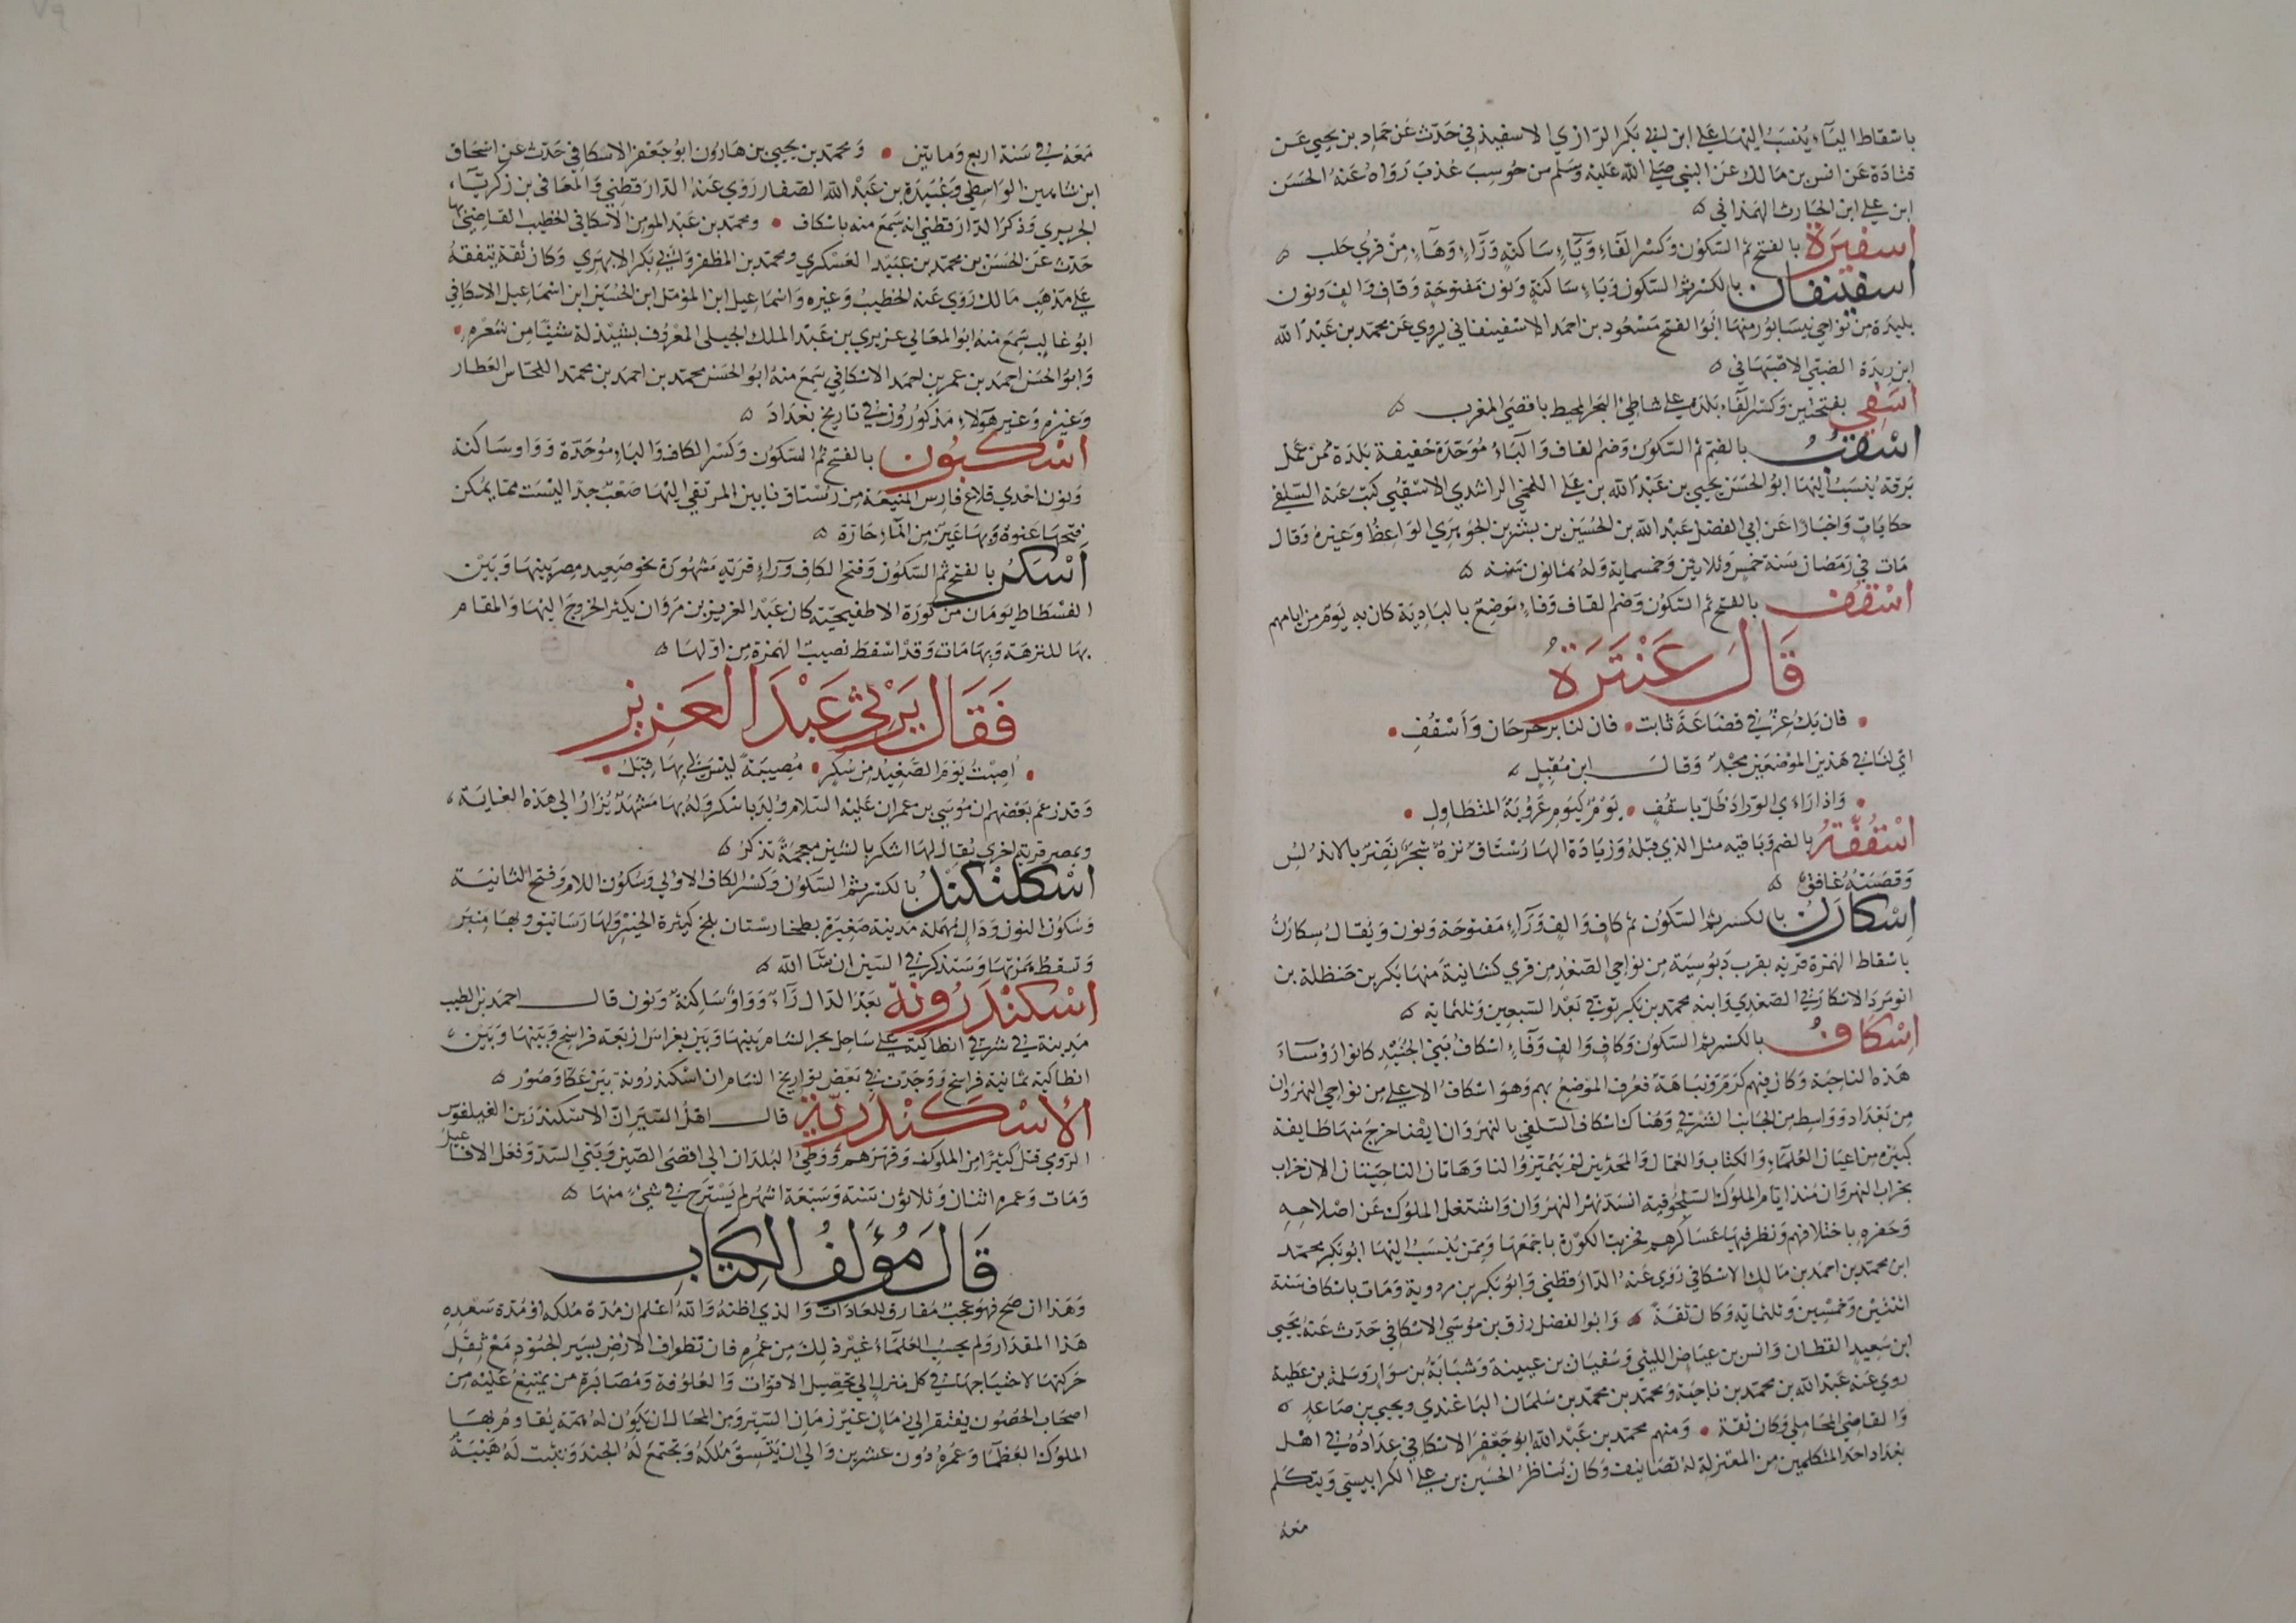 باسقاط الياء ينسب اليها علي ابن ابي بكر الرازي الاسفيذني حدث عن حماد بن يحيى عن
قتادة عن انس بن مالك عن النبي صلى الله عليه وسلم من حوسب عذب رواه عنه الحسن
ابن علي ابن الحارث الهمذاني
اسفيرة بالفتح ثم السكون وكسر الفاء وياء ساكنة وراء وهاء من قرى حلب
اسفينقان بالكسر ثم السكون وياء ساكنة ونون مفتوحة وقاف والف ونون
بليدة من نواحي نيسابور منها ابو الفتح مسعود بن احمد الاسفينقاني يروي عن محمد بن عبد الله
ابن ريذة الضبي الاصبهاني
اسفي بفتحتين وكسر الفاء بلدة على شاطئ البحر المحيط باقصى المغرب
اسقب بالفتح ثم السكون وضم القاف والباء موحدة خفيفة بلدة من عمل
برقة ينسب اليها ابو الحسن يحيى بن عبد الله بن علي اللخمي الراشدي الاسقبي كتب عنه السلفي
حكايات واخبارا عن ابي الفضل عبد الله بن الحسين بن بشر بن الجوهري الواعظ وغيره وقال
مات في رمضان سنة خمس وثلاثين وخمسماية وله ثمانون سنة
اسقف بالفتح ثم السكون وضم القاف وفاء موضع بالبادية كان به يوم من ايامهم
قال عنترة
فان يك عز في قضاعة ثابت • فان لنا برحرحان واسقف •
اي لنا في هذين الموضعين مجد وقال ابن مقبل
• واذا راى الوراد ظل باسقف • يوم كيوم عروبة المتطاول •
اسقفة بالضم وباقيه مثل الذي قبله وزيادة الها رستاق نزه شجر نضر بالاندلس
وقصبته غافق
اسكارن بالكسر ثم السكون ثم كاف والف وراء مفتوحة ونون ويقال سكارن
باسقاط الهمزة قرية بقرب دبوسية من نواحي الصغد من قرى كشانية منها بكر بن حنظلة بن
انومرد الاسكارني الصغدي وابنه محمد بن بكر توفي بعد السبعين وثلثماية
اسكاف بالكسر ثم السكون وكاف والف وفاء اسكاف بني الجنيد كانوا رؤساء
هذه الناحية وكان فيهم كرم ونباهة فعرف الموضع بهم وهو اسكاف الاعلى من نواحي النهروان
من بغداد وواسط من الجانب الشرقي وهناك اسكاف السفلى بالنهروان ايضا خرج منها طايفة
كبيرة من اعيان العلماء والكتاب والعمال والمحدثين لم يتميزوا لنا وهاتان الناحيتان الان خراب
بخراب النهروان منذ ايام الملوك السلجوقية انسد نهر النهروان واشتغل الملوك عن اصلاحه
وحفره باختلافهم ونظر فيها عساكرهم فخربت الكورة باجمعها وممن ينسب اليها ابو بكر محمد
ابن محمد بن احمد بن مالك الاسكافي روى عنه الدارقطني وابو بكر بن مردوية ومات باسكاف سنة
اثنتين وخمسين وثلثماية وكان ثقة • وابو الفضل رزق بن موسى الاسكافي حدث عنه يحيى
ابن سعيد القطان وانس بن عياض الليثي وسفيان بن عيينة وشبابة بن سوار وسلمة بن عطية
روي عنه عبد الله بن محمد بن ناجية ومحمد بن محمد بن سلمان الباغندي ويحيى بن صاعد
والقاضي المحاملي وكان ثقة • ومنهم محمد بن عبد الله ابو جعفر الاسكافي عداده في اهل
بغداد احد المتكلمين من المعتزلة له تصانيف وكان يناظر الحسين بن علي الكرابيسي ويتكلم
معه
معه في سنة اربع ومايتين • ومحمد بن يحيى بن هارون ابو جعفر الاسكافي حدث عن اسحاق
ابن شاهين الواسطي وعبيدة بن عبد الله الصفار روى عنه الدارقطني والمعافى بن زكرياء
الجريري وذكر الدارقطني انه سمع منه باسكاف • ومحمد بن عبد المومن الاسكافي الخطيب القاضي بها
حدث عن الحسن بن محمد بن عبيد العسكري ومحمد بن المظفر وابي بكر الابهري وكان ثقة يتفقه
على مذهب مالك روى عنه الخطيب وغيره واسماعيل ابن المؤمل ابن الحسين ابن اسماعيل الاسكافي
ابو غالب سمع منه ابو المعالي عزيزي بن عبد الملك الجيلي المعروف بشيذلة شيئا من شعره •
وابو الحسن احمد بن عمر بن احمد الاسكافي سمع منه ابو الحسن محمد بن احمد بن محمد النحاس العطار
وغيره وغير هولاء مذكورون في تاريخ بغداد
اسكبون بالفتح ثم السكون وكسر الكاف والباء موحدة وواو ساكنة
ونون احدى قلاع فارس المنيعة من رستاق نابين المرتقى اليها صعب جدا ليست مما يمكن
فتحها عنوة وبها عين من الماء حارة
اسكر بالفتح ثم السكون وفتح الكاف وراء قرية مشهورة نحو صعيد مصر بينها وبين
الفسطاط يومان من كورة الاطفيحية كان عبد العزيز بن مروان يكثر الخروج اليها والمقام
بها للنزهة وبها مات وقد اسقط نصيب الهمزة من اولها
فقال يرثي عبد العزيز
• اصبت يوم الصعيد من سكر • مصيبة ليس لي بها قبل •
وقد زعم بعضهم ان موسى بن عمران عليه السلام ولد باسكر وله بها مشهد يزار الى هذه الغاية
وبمصر قرية اخرى يقال لها اشكر بالشين معجمة تذكر
اسكلكند بالكسر ثم السكون وكسر الكاف الاولى وسكون اللام وفتح الثانية
وسكون النون ودال مهملة مدينة صغيرة بطخارستان بلخ كثيرة الخير ولها رساتيق وبها منبر
وتسقط همزتها وستذكر في السين ان شا الله
اسكندرونة بعد الدال راء وواو ساكنة ونون قال احمد بن الطيب
مدينة في شرقي انطاكية على ساحل بحر الشام بينها وبين بغراس اربعة فراسخ وبينها وبين
انطاكية ثمانية فراسخ ووجدت في بعض تواريخ الشام ان اسكندرونة بين عكا وصور
الاسكندرية قال اهل السير ان الاسكندر بن الفيلفوس
الرومي قتل كثيرا من الملوك وقهرهم ووطئ البلدان الى اقصى الصين وبنى السد وفعل الافاعيل
ومات وعمره اثنان وثلاثون سنة وسبعة اشهر لم يسترح في شيء منها
قال مؤلف الكتاب
وهذا ان صح فهو عجب مفارق للعادات والذي اظنه والله اعلم ان مدة ملكه او مدة سعده
هذا المقدار ولم يحسب العلماء غير ذلك من عمره فان تطواف الارض بسير الجنود مع ثقل
حركتها لاحتياجها في كل منزل الى تحصيل الاقوات والعلوفة ومصابرة من يمتنع عليه من
اصحاب الحصون يفتقر الى زمان غير زمان السير ومن المحال ان يكون له همة يقاوم بها
الملوك العظما وعمره دون عشرين والى ان يتسق ملكه وتجتمع له الجند وتثبت له هيبة